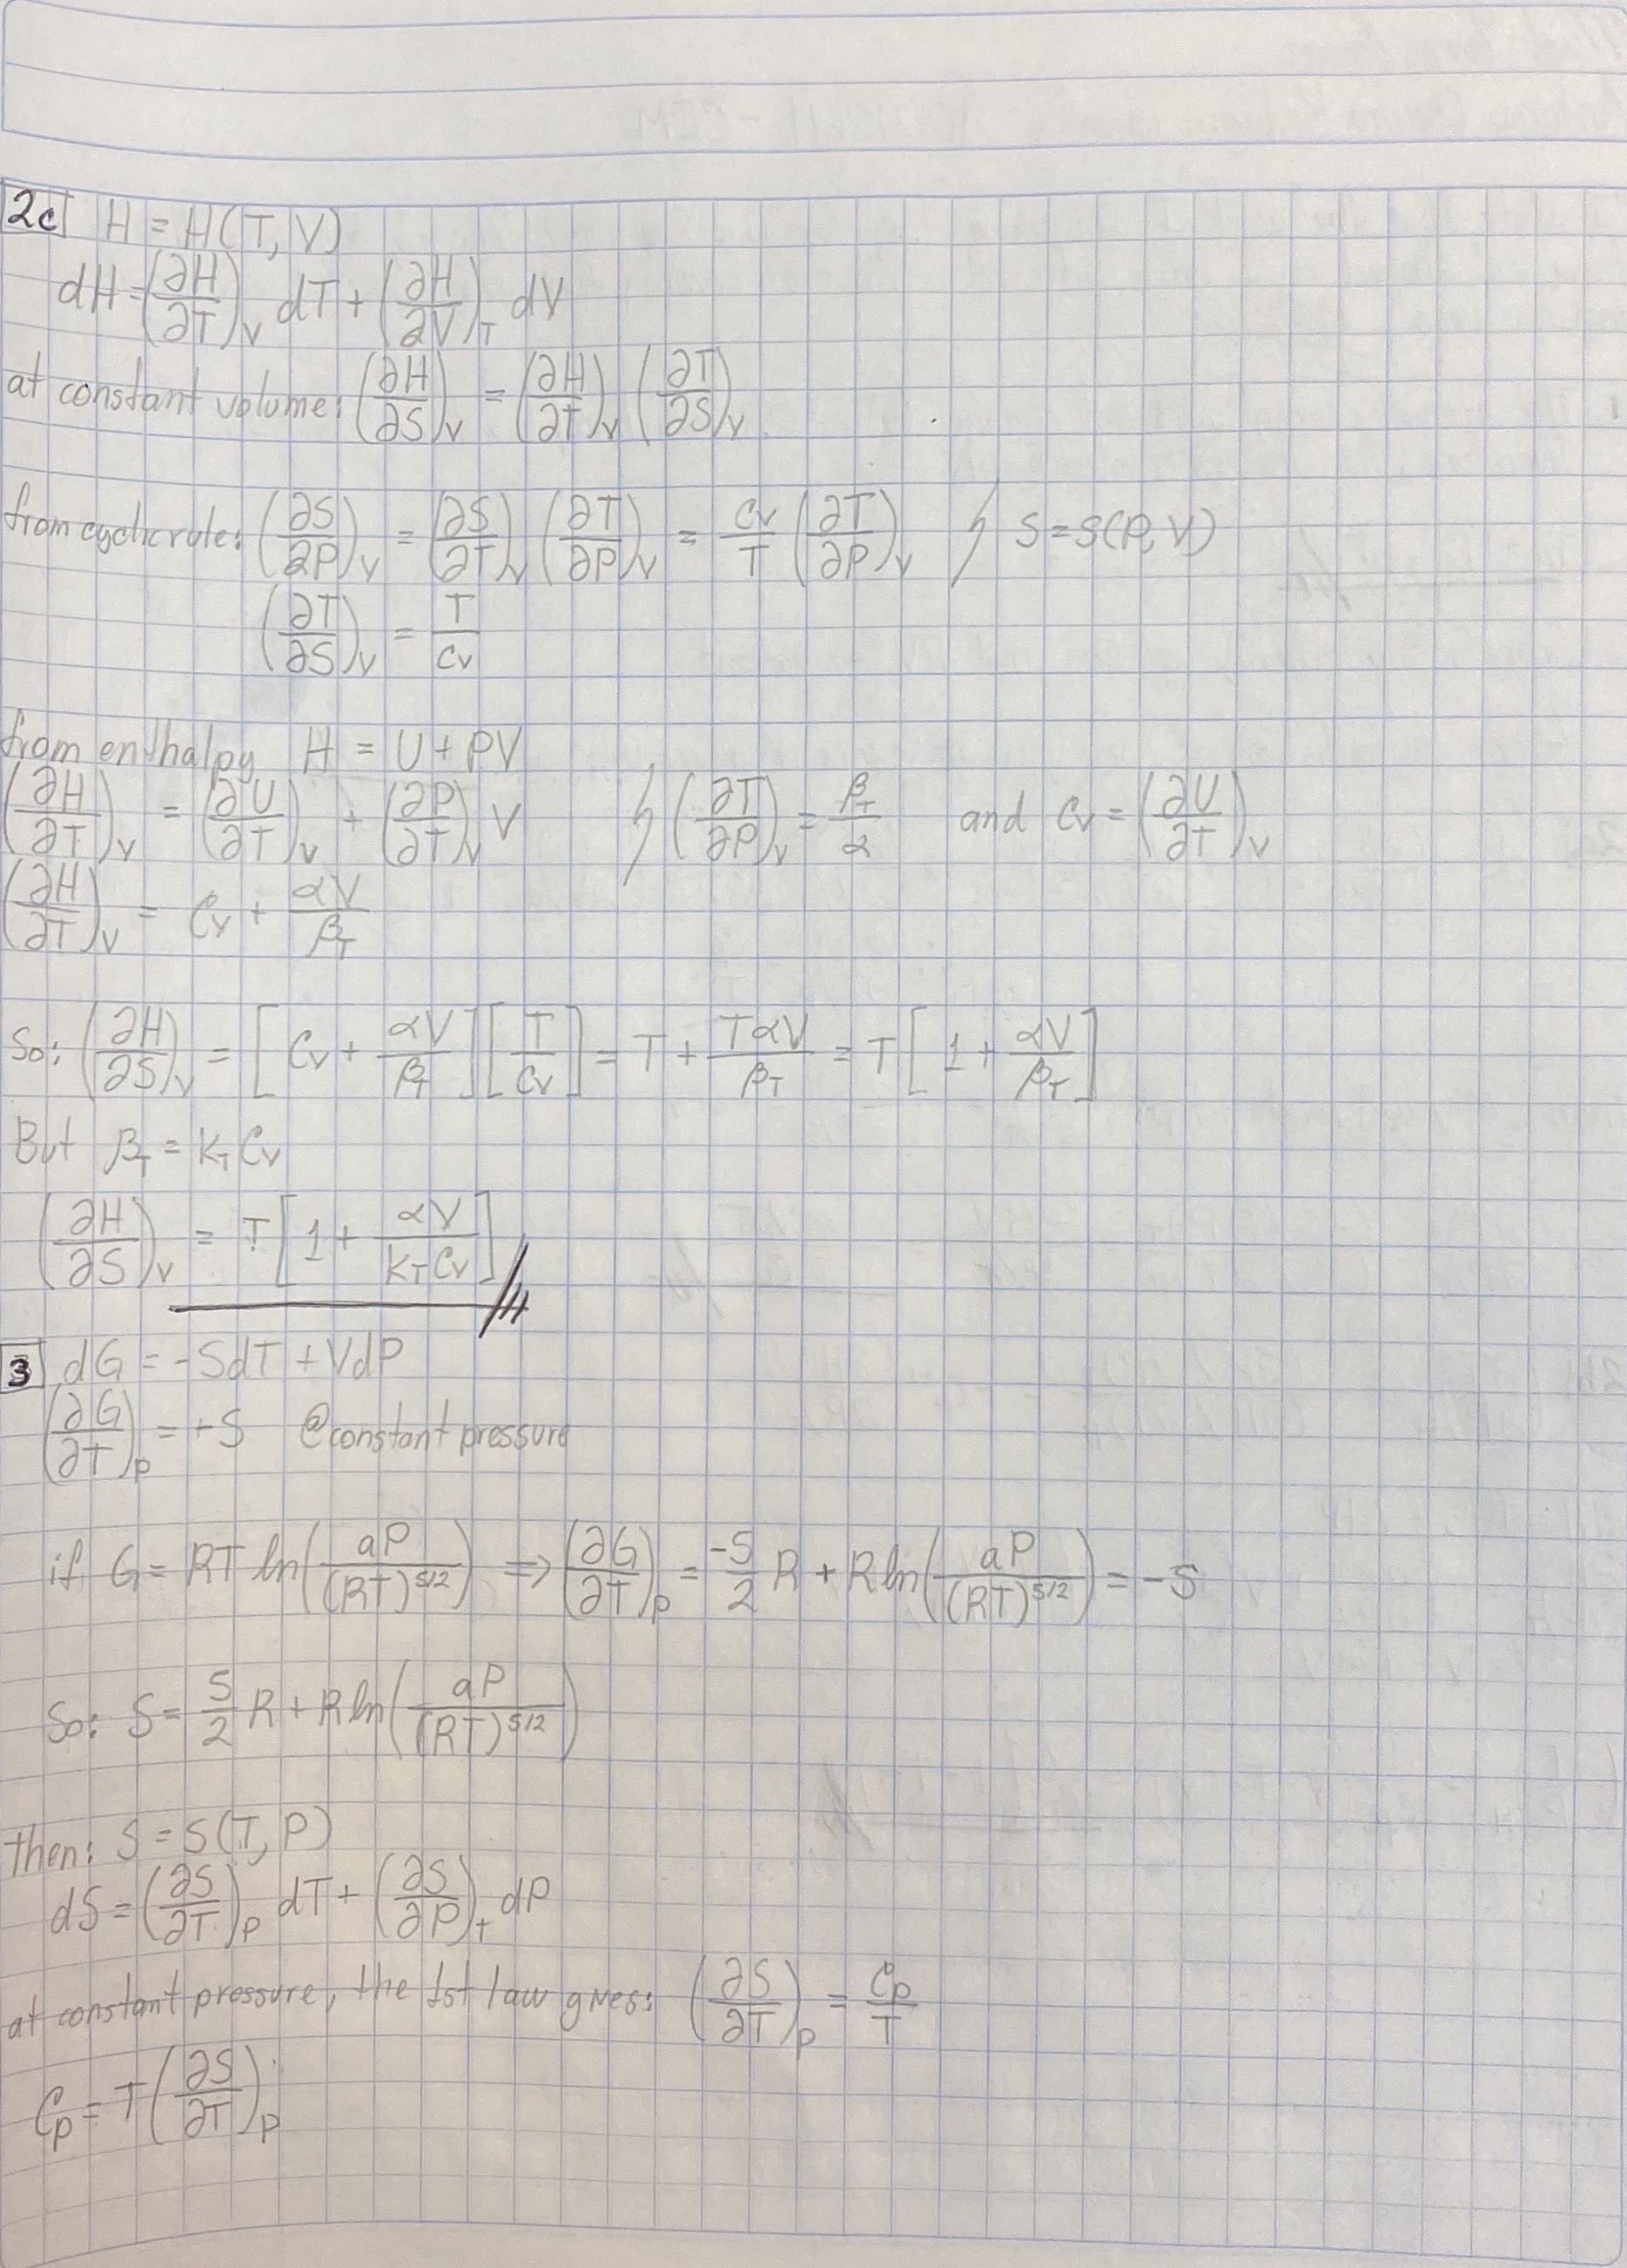 2c H = H(T, V)
dH = (∂H/∂T)_V dT + (∂H/∂V)_T dV
at constant volume: (∂H/∂S)_V = (∂H/∂T)_V (∂T/∂S)_V
from cyclic rule: (∂S/∂P)_V = (∂S/∂T)_V (∂T/∂P)_V = Cv/T (∂T/∂P)_V // S = S(P, V)
(∂T/∂S)_V = T/Cv
from enthalpy H = U + PV
(∂H/∂T)_V = (∂U/∂T)_V + (∂P/∂T)_V V // (∂T/∂P)_V = β_T/α and Cv = (∂U/∂T)_V
(∂H/∂T)_V = Cv + αV/β_T
So: (∂H/∂S)_V = [Cv + αV/β_T] [T/Cv] = T + TαV/β_T = T [1 + αV/β_T]
But β_T = K_T Cv
(∂H/∂S)_V = T [1 + αV/(K_T Cv)]
3 dG = -SdT + VdP
(∂G/∂T)_P = -S @constant pressure
if G = RT ln(aP/(RT)^5/2) ⟹ (∂G/∂T)_P = -5/2 R + R ln(aP/(RT)^5/2) = -S
So: S = 5/2 R + R ln(aP/(RT)^5/2)
then: S = S(T, P)
dS = (∂S/∂T)_P dT + (∂S/∂P)_T dP
at constant pressure, the 1st law gives: (∂S/∂T)_P = Cp/T
Cp = T (∂S/∂T)_P